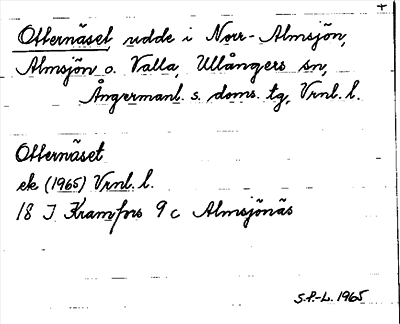 +
Otternäset udde i Norr-Almsjön,
Almsjön o. Valla, Ullångers sn,
Ångermanl. s. doms. tg, Vrnl. l.
Otternäset
ek (1965) Vrnl. l.
18 I Kramfors 9 c Almsjönäs
S.P.-L. 1965